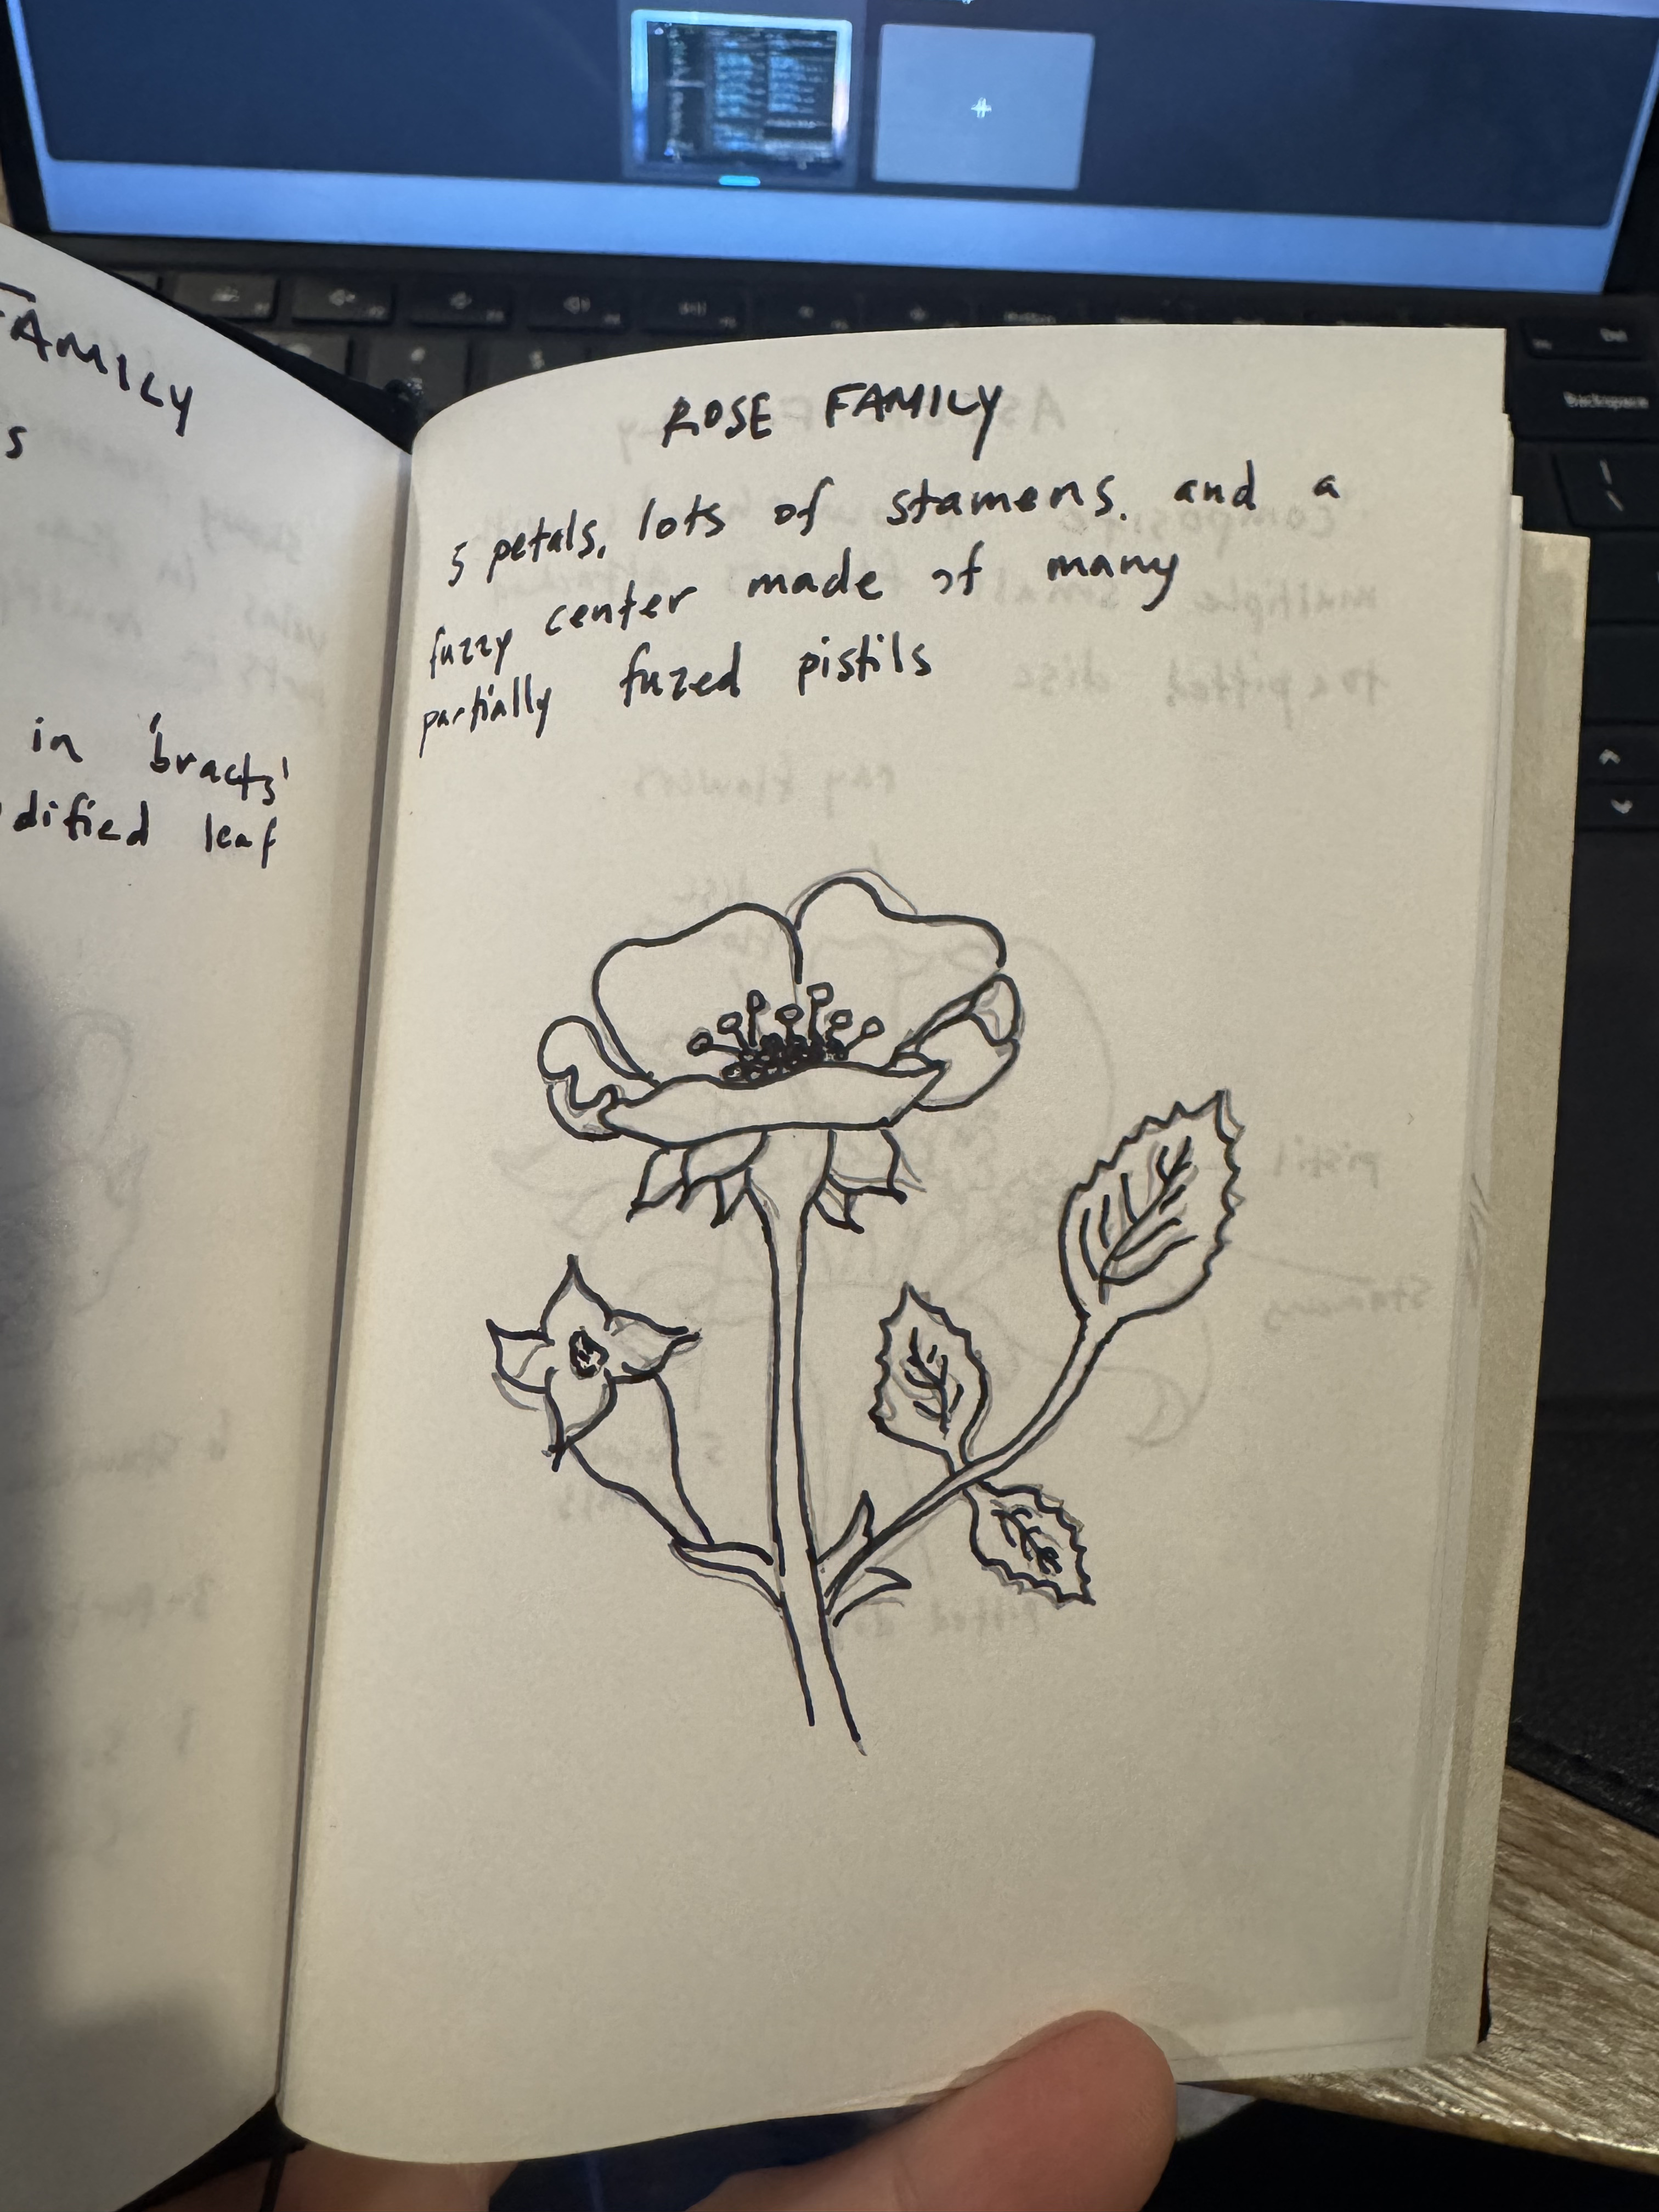 FAMILY
s
in 'bracts'
dified leaf
ROSE FAMILY
5 petals, lots of stamens, and a
fuzzy center made of many
partially fuzed pistils
Backspace